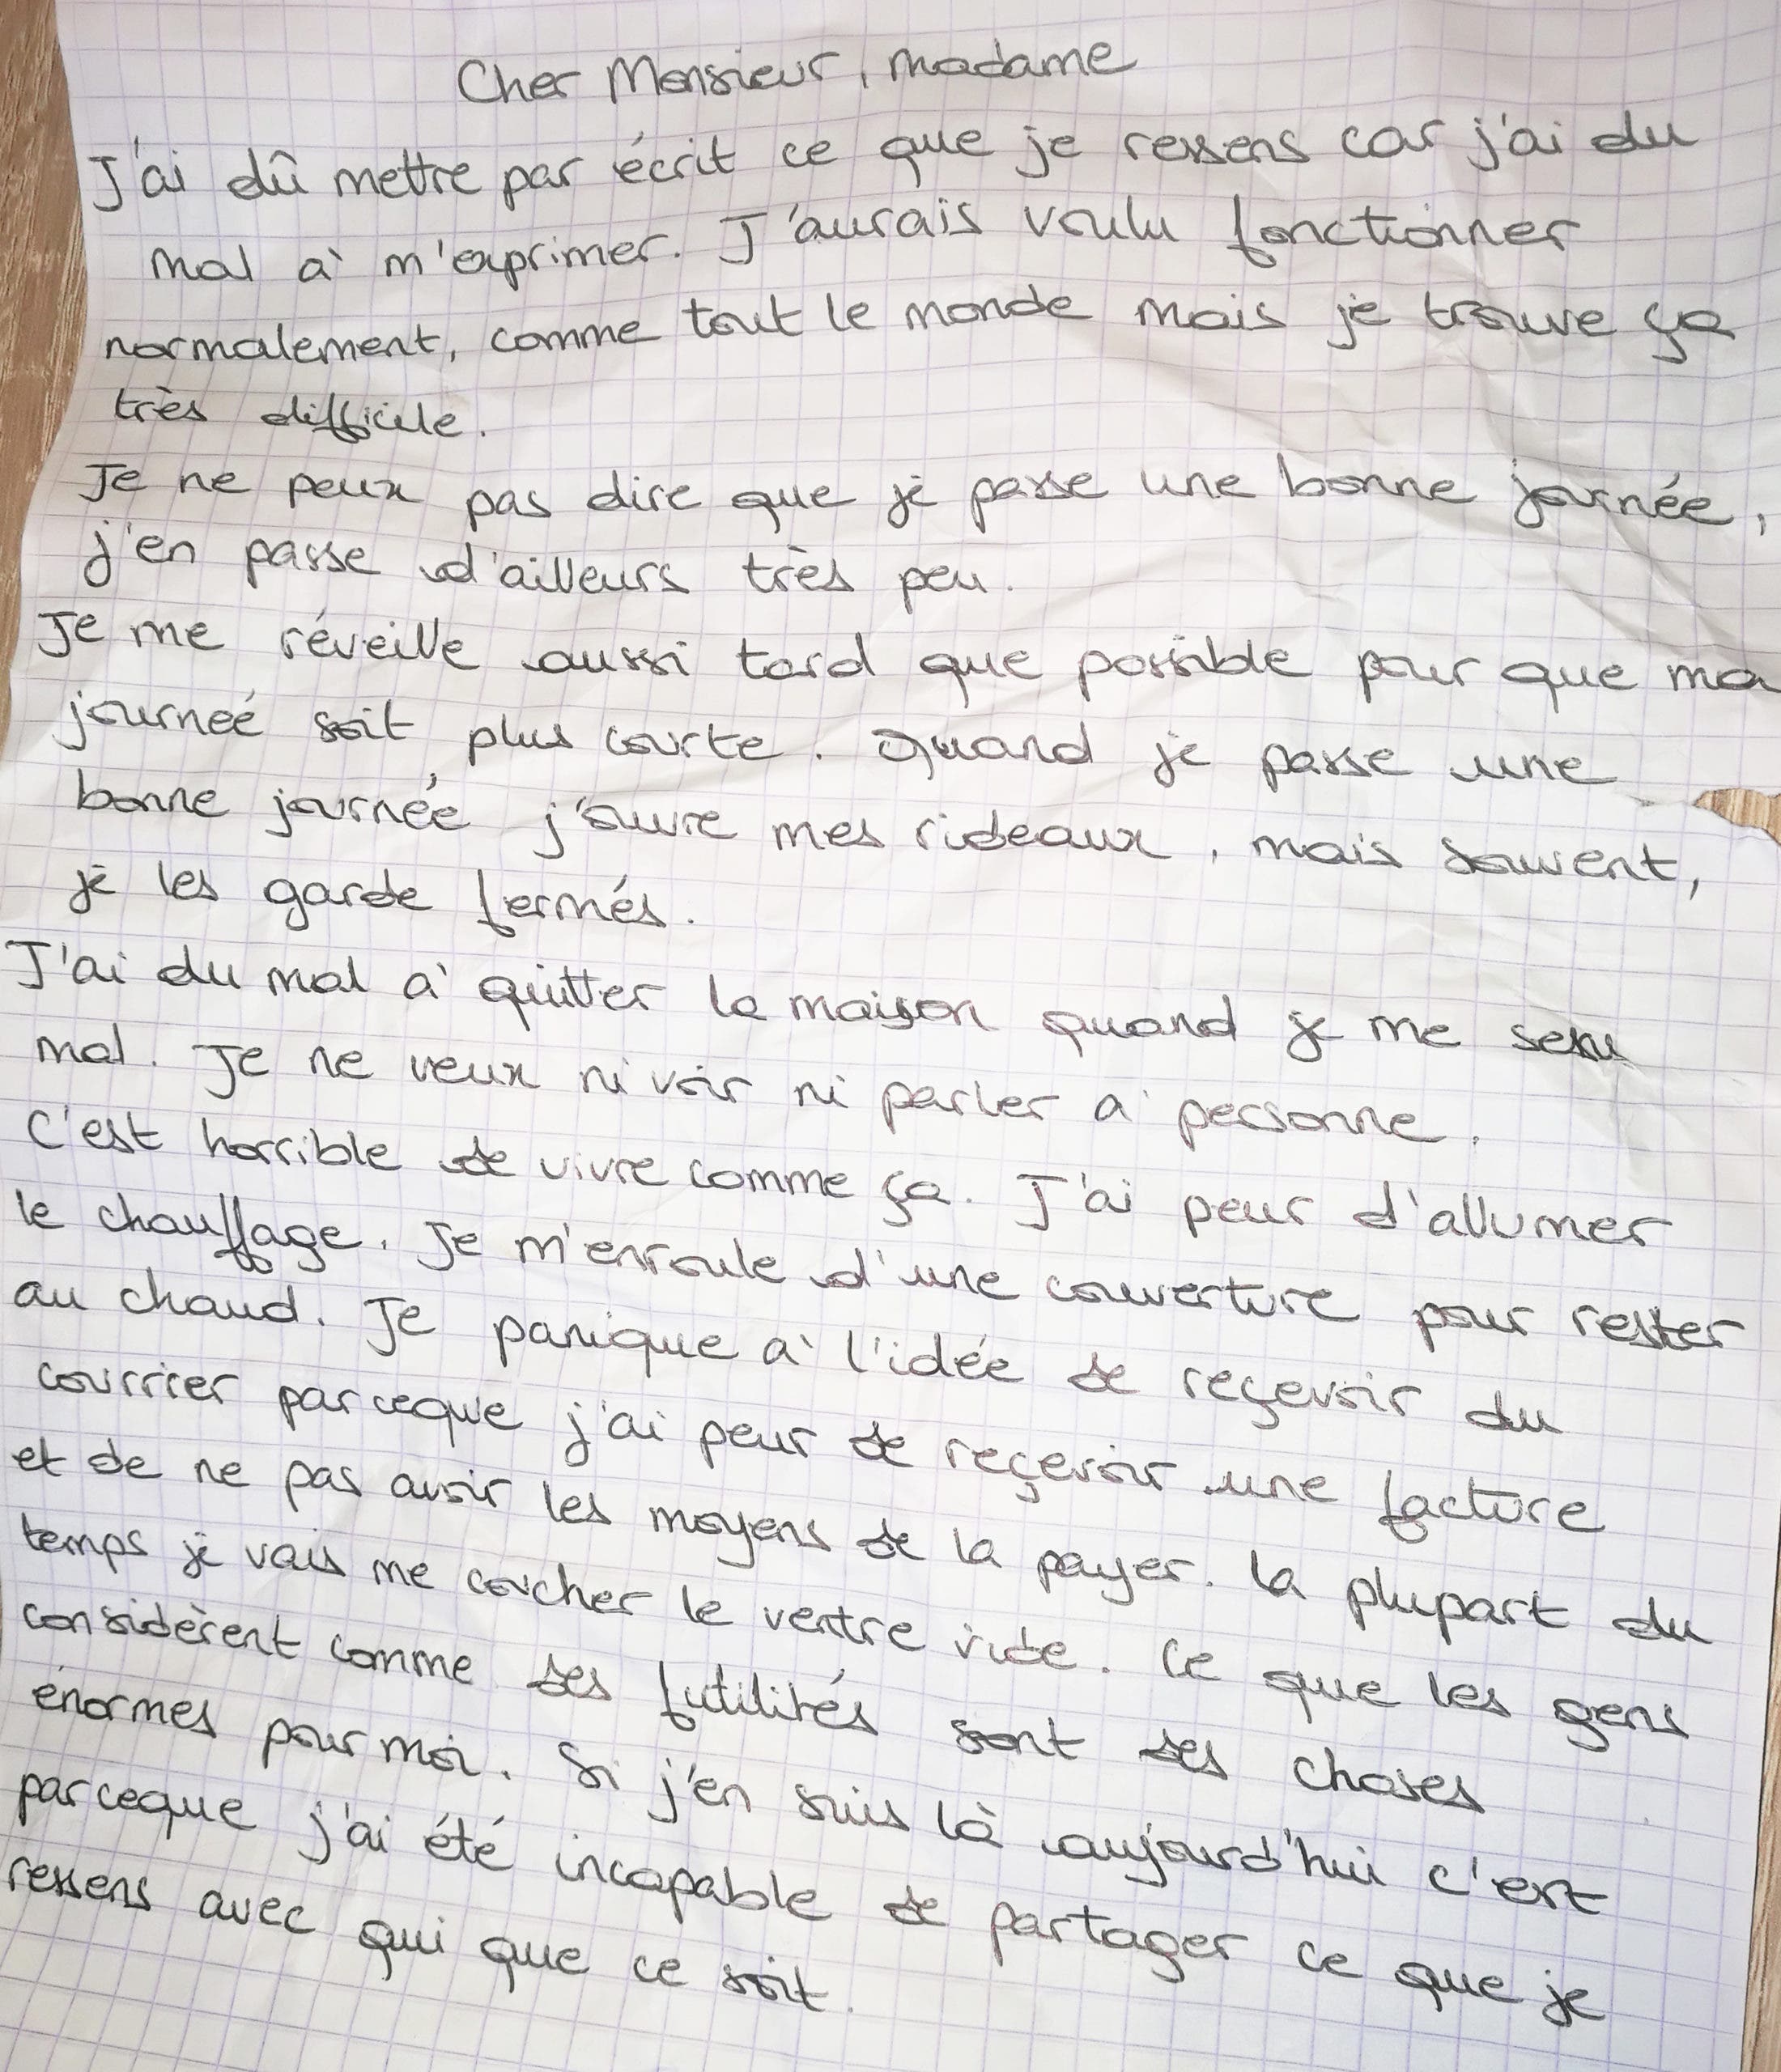 Cher Monsieur, madame
J'ai dû mettre par écrit ce que je ressens car j'ai du
mal à m'exprimer. J'aurais voulu fonctionner
normalement, comme tout le monde mais je trouve ça
très difficile.
Je ne peux pas dire que je passe une bonne journée,
j'en passe d'ailleurs très peu.
Je me réveille aussi tard que possible pour que ma
journeé soit plus courte. Quand je passe une
bonne journée, j'ouvre mes rideaux, mais souvent,
je les garde fermés.
J'ai du mal à quitter la maison quand je me sens
mal. Je ne veux ni voir ni parler à personne.
C'est horrible de vivre comme ça. J'ai peur d'allumer
le chauffage. Je m'enroule d'une couverture pour rester
au chaud. Je panique à l'idée de reçevoir du
courrier parceque j'ai peur de reçevoir une facture
et de ne pas avoir les moyens de la payer. La plupart du
temps je vais me coucher le ventre vide. Ce que les gens
considèrent comme des futilités sont des choses
énormes pour moi. Si j'en suis là aujourd'hui c'est
parceque j'ai été incapable de partager ce que je
ressens avec qui que ce soit.